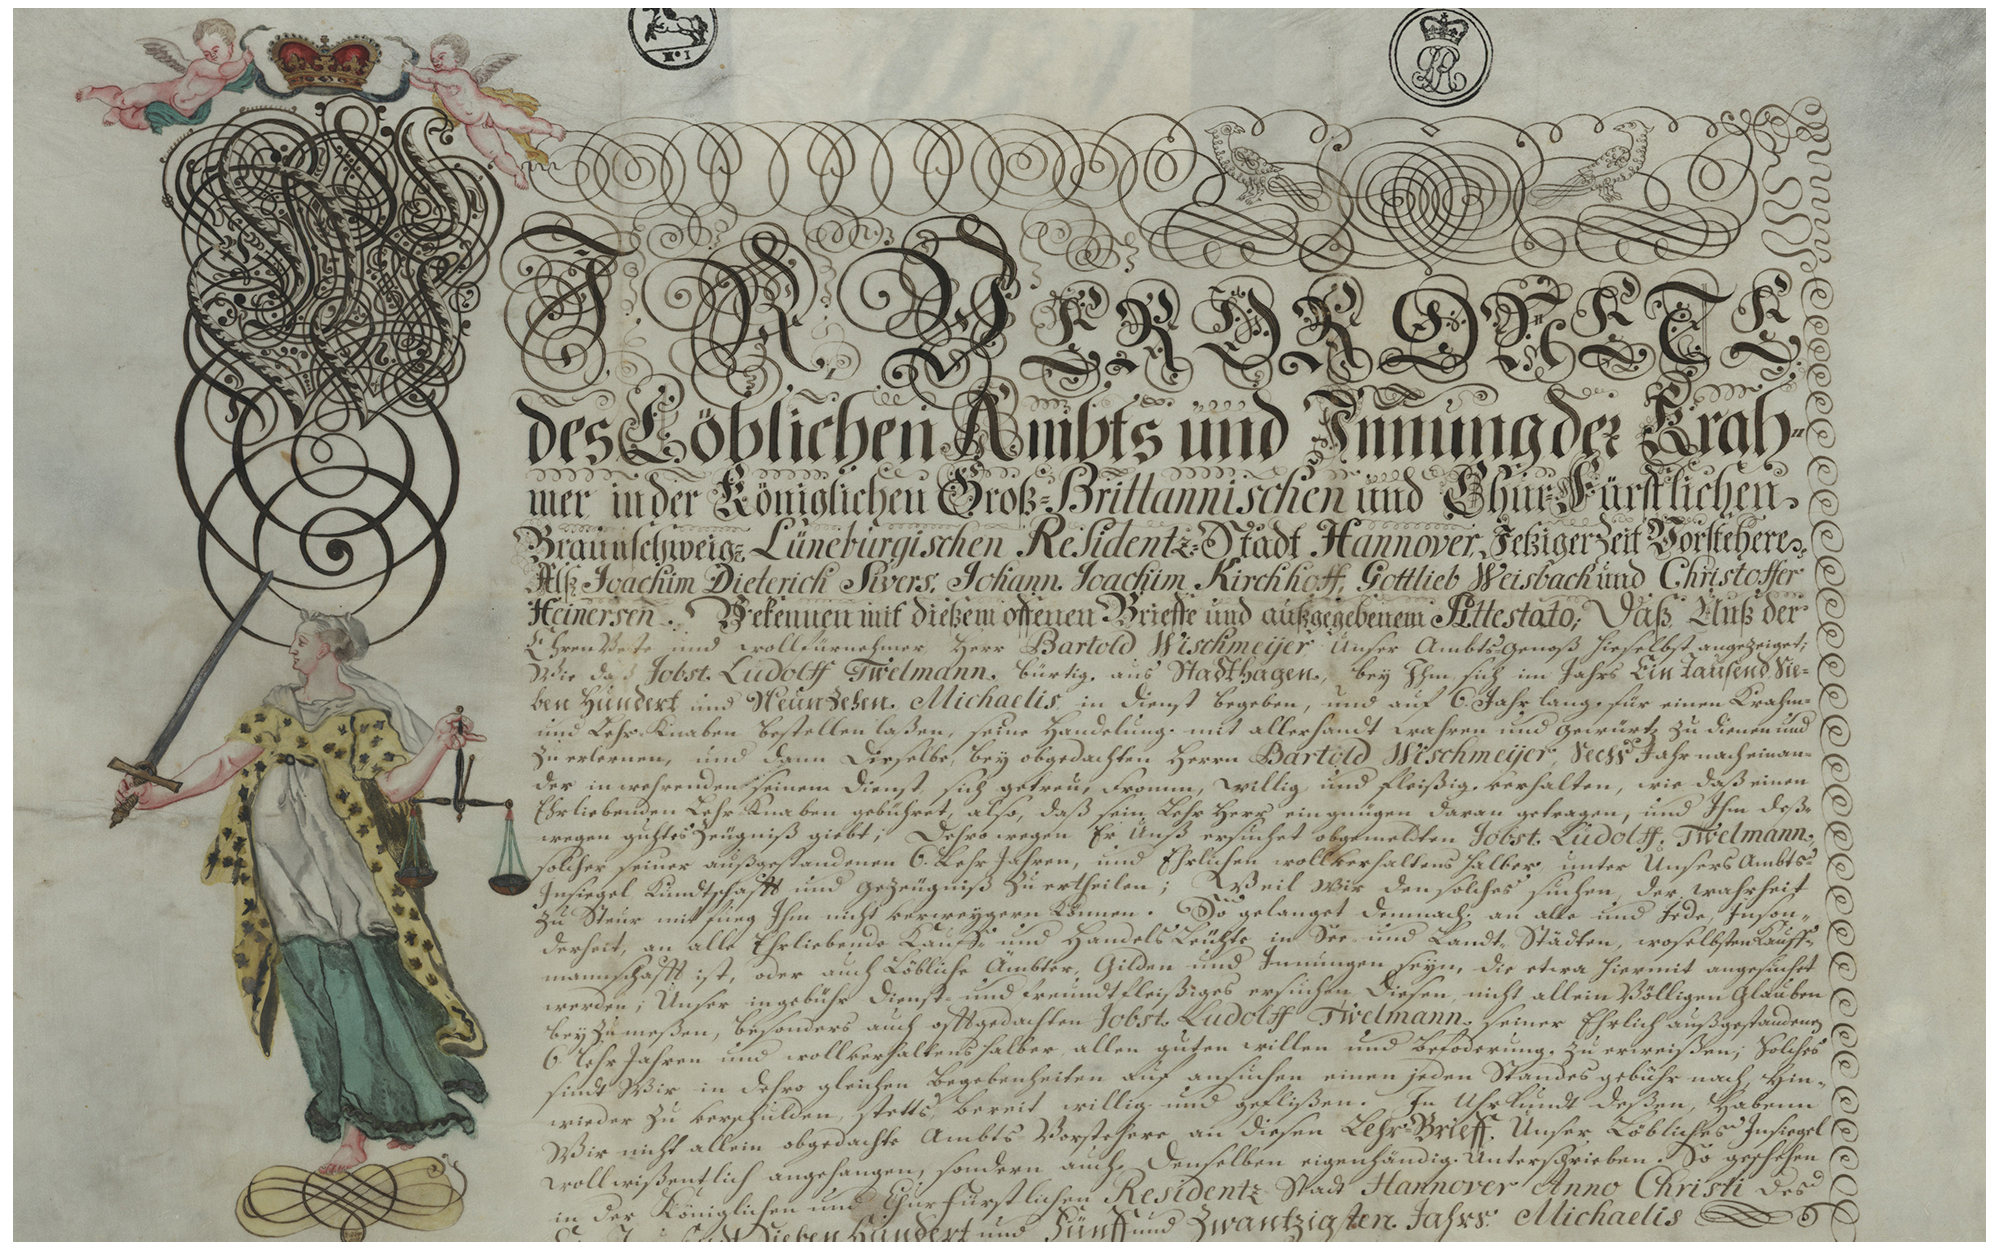 No. 1
GR
WIR VERORDNETE
des Löblichen Ambts und Innung der Krah-
mer in der Königlichen Groß-Brittannischen und Chur-Fürstlichen
Braunschweig-Lüneburgischen Residentz-Stadt Hannover, Jetziger Zeit Vorstehere,
Alß Joachim Dieterich Sivers, Johann Joachim Kirchhoff, Gottlieb Weisbach und Christoffer
Heinersen. Bekennen mit dießem offenen Brieffe und außgegebenem Attestato, Daß Unß der
EhrenVeste und wollfürnehmer Herr Bartold Wischmeijer Unser AmbtsGenoß hieselbst angezeiget;
Wie daß Jobst Ludolff Twelmann, bürtig aus Stadthagen, bey Ihm sich im Jahrs Ein tausend Sie-
ben Hundert und Neunzehen Michaelis in Dienst begeben, und auf 6 Jahr lang, für einen Krahm-
und Lehr-Knaben bestellen laßen, seine Handelung mit allerhandt wahren und Gewürtz zu dienen und
zu erlernen, und dann Dieselbe, bey obgedachten Herrn Bartold Wischmeijer, Sechs Jahr nacheinan-
der in wehrenden seinem Dienst, sich getreu, Fromm, willig und fleißig verhalten, wie daß einen
Ehrliebenden Lehr-Knaben gebühret, also, daß sein Lehr Herr ein gnügen daran getragen, und Ihm deß-
wegen guhtes Zeugniß giebt; Dehrowegen Er Unß ersuchet obgemeldten Jobst Ludolff Twelmann,
solcher seiner außgestandenen 6 Lehr Jahren, und Ehrlichen wollverhaltens halber, unter Unsers Ambts
Insiegel Kundtschafft und Gezeugniß zu ertheilen; Weil Wir den solches suchen, der wahrheit
zu Steur mit fueg Ihm nicht verweygern können. So gelanget demnach, an alle und Jede, Inson-
derheit, an alle Ehrliebende Kauff- und Handels Leuhte in See- und Landt-Städten, woselbsten Kauff-
mannschafft ist, oder auch Löbliche Ämbter, Gilden und Innungen seyn, die etwa hiermit angesuchet
werden; Unser ingebühr Dienst- und freundtfleißiges ersuchen Diesen, nicht allein Völligen Glauben
beyzumeßen, besonders auch offtgedachten Jobst Ludolff Twelmann, seiner Ehrlich außgestandenen
6 Lehr Jahren und wollverhaltens halber, allen guten willen und befoderung zu erweißen; Solches
sindt Wir in dehro gleichen Begebenheiten auf ansuchen einen jeden Standes gebühr nach, Hin-
wieder zu verschulden, stetts bereit willig und geflißen. In Uhrkundt deßen, Habenn
Wir nicht allein obgedachte Ambts Vorstehere an diesen Lehr-Brieff, Unser Löbliches Insiegel
wollwißentlich angehangen, sondern auch, Denselben eigenhändig Unterschrieben. So geschehen
in der Königlichen und Churfürstlichen Residentz Stadt Hannover Anno Christi des
Sieben Hundert und Fünff und Zwantzigsten Jahrs Michaelis